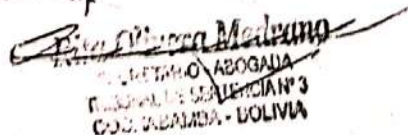 Rita Olivera Medrano
SECRETARIO ABOGADA
TRIBUNAL DE SENTENCIA Nº 3
COCHABAMBA - BOLIVIA